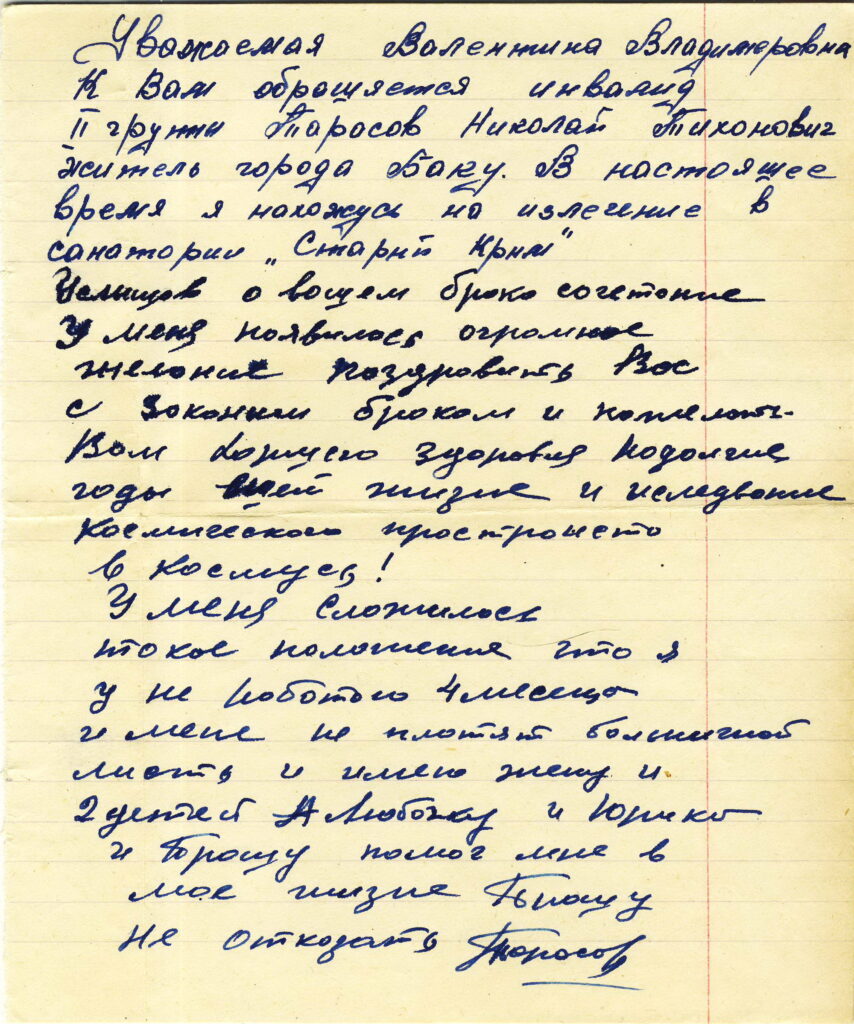 Уважаемая Валентина Владимеровна
К Вам обрашяется инвалид
II групы Тарасов Николай Тихонович
житель города Баку. В настоящее
время я нахожусь на излечение в
санатории „Старый Крым"
Услышов о вошем брако сочетоние
У меня появилось огромное
желоние поздровить Вас
с зоконым броком и пожелоть
Вам хорошего здоровия подолгие
годы жизне и иследвоние
космического простронсто
в космусь!
У меня сложилось
токое положения что я
у не роботою 4 месеца
и мене не плотят больничной
листь и имею жену и
2 детей Любочку и Юрика
и Прошу помоч мне в
мое жизне Прошу
не откозать Торосов